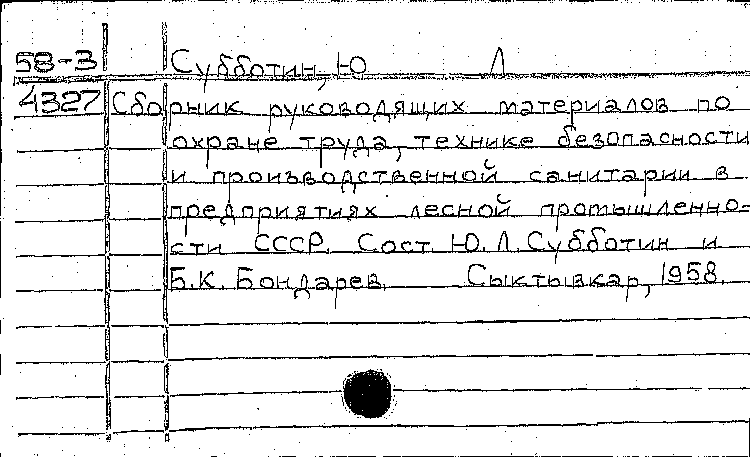 58-3 Субботин, Ю Л
4327 Сборник руководящих материалов по
охране труда, технике безопасности
и производственной санитарии в
предприятиях лесной промышленно-
сти СССР. Сост. Ю.Л. Субботин и
Б.К. Бондарев. Сыктывкар, 1958.